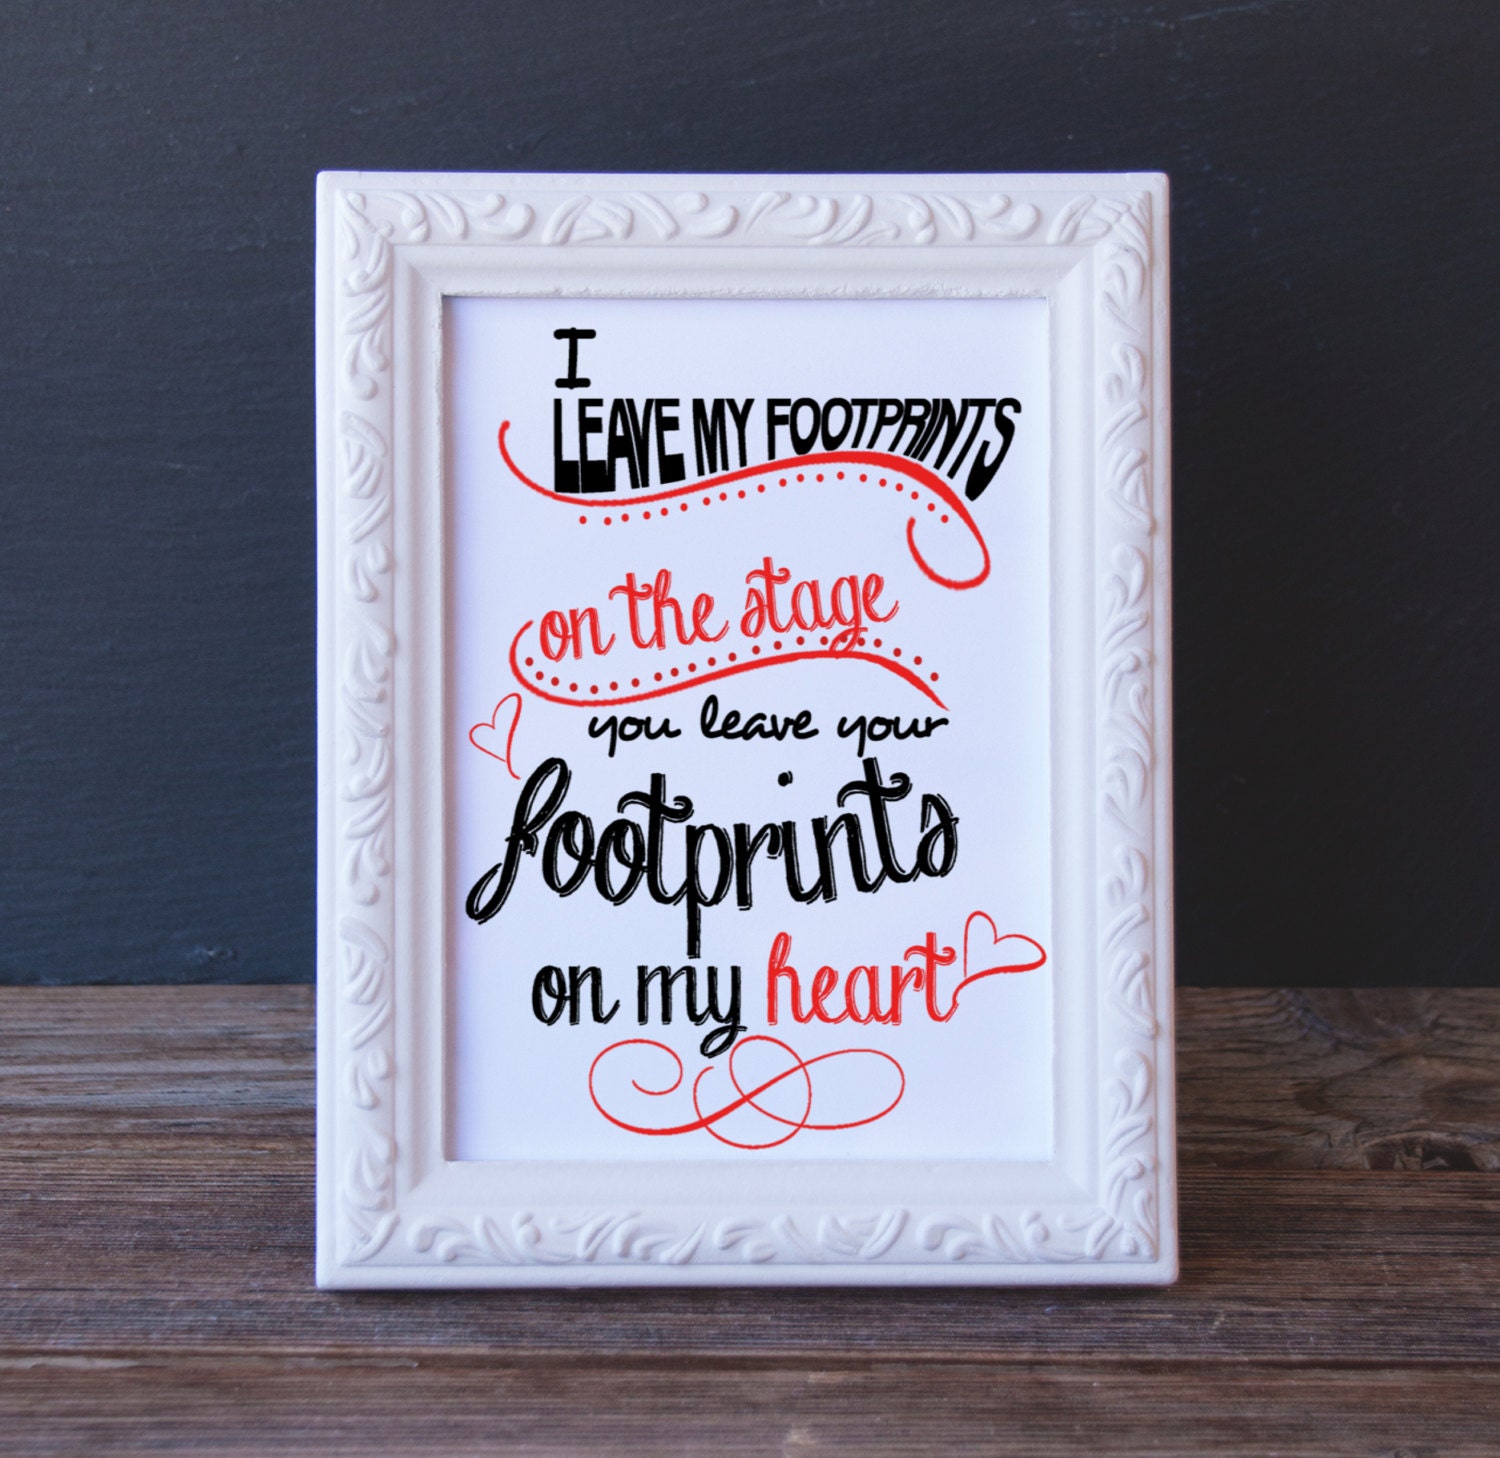 I
LEAVE MY FOOTPRINTS
on the stage
you leave your
footprints
on my heart